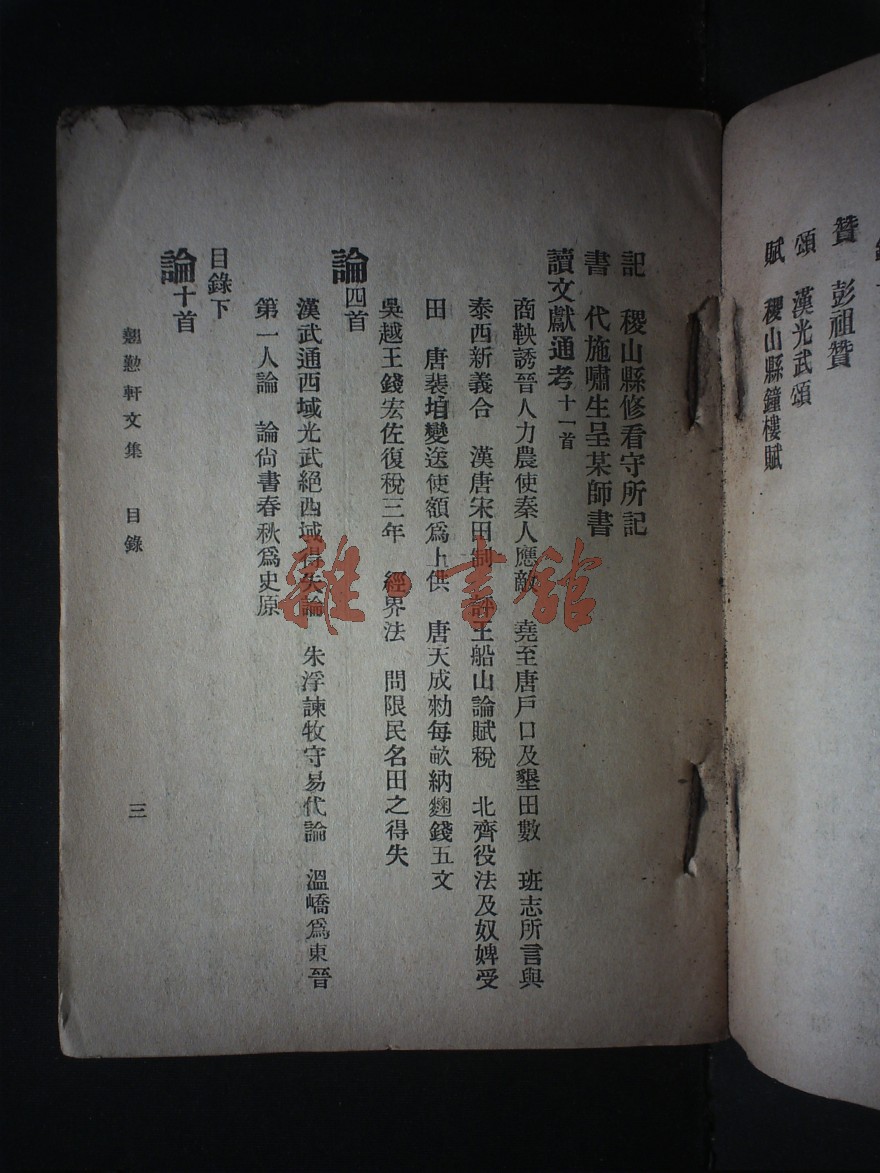 贊　彭祖贊
頌　漢光武頌
賦　稷山縣鐘樓賦
記　稷山縣修看守所記
書　代施嘯生呈某師書
讀文獻通考十一首
商鞅誘晉人力農使秦人應敵　堯至唐戶口及墾田數　班志所言與
泰西新義合　漢唐宋田制　評王船山論賦稅　北齊役法及奴婢受
田　唐裴垍變送使額爲上供　唐天成勅每畝納麴錢五文
吳越王錢宏佐復稅三年　經界法　問限民名田之得失
論四首
漢武通西域光武絕西域得失論　朱浮諫牧守易代論　溫嶠爲東晉
第一人論　論尙書春秋爲史原
目錄下
論十首
軒文集　目錄
三
雜·書館